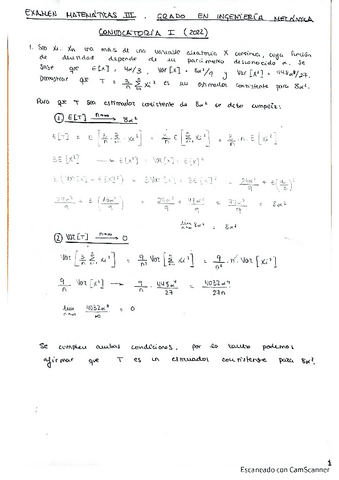 EXAMEN MATEMÁTICAS III . GRADO EN INGENIERÍA MECÁNICA
CONVOCATORIA I (2022)
1. Sea X₁...Xₙ una m.a.s de una variable aleatoria X continua, cuya función
de densidad depende de un parámetro desconocido α. Se
sabe que E[X] = 4α/3 , Var[X] = 8α²/9 y Var[X²] = 448α⁴/27.
Demostrar que T = 3/n Σ Xi² es un estimador consistente para 8α².
Para que T sea estimador consistente de 8α² se debe cumplir:
① E[T] n→∞ 8α²
E[T] = E[3/n Σ Xi²] = 3/n E[Σ Xi²] = 3/n · n · E[Xi²]
3E[X²] → E[X²] = Var[X] + E[X]²
lim n→∞ 8α² = 8α²
② Var[T] n→∞ → 0
Var[3/n Σ Xi²] = 9/n² Var[Σ Xi²] = 9/n² · n · Var[Xi²]
9/n Var[X²] → 9/n · 448α⁴/27 = 4032α⁴/27n
lim n→∞ 4032α⁴/∞ = 0
Se cumplen ambas condiciones, por lo tanto podemos
afirmar que T es un estimador consistente para 8α².
1
Escaneado con CamScanner